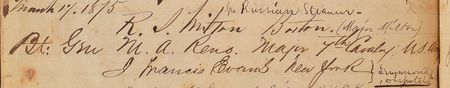 March 17. 1875
R. S. Milton Boston. (Major Milton)
Bt. Gen M. A. Reno. Major 7th Cavalry US
J Francis Evans New York